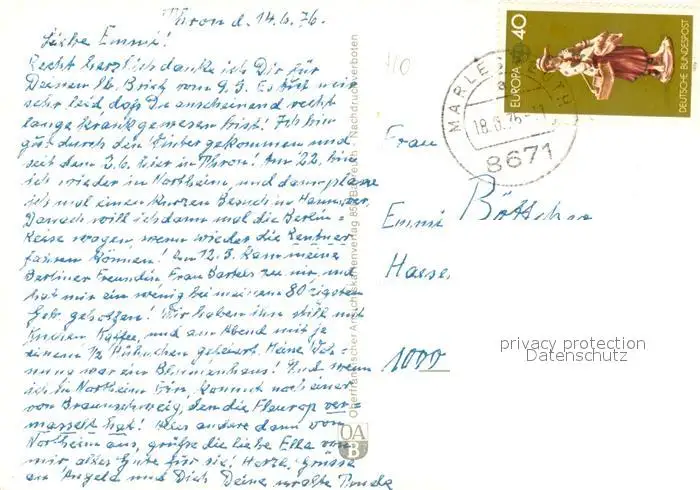 Thron d. 14.6.76.
Liebe Emmi!
Recht herzlich danke ich Dir für
Deinen lb. Brief vom 9.3. Es tut mir
sehr leid daß Du anscheinend recht
lange krank gewesen bist! Ich bin
gut durch den Winter gekommen und
seit dem 3.6. hier in Thron! Am 22. bin
ich wieder in Northeim, und dann plane
ich mal einen kurzen Besuch in Hannover.
Danach will ich dann mal die Berlin-
Reise wagen, wenn wieder die Rentner
fahren können! Am 12.3. kam meine
Berliner Freundin Frau Bartels zu mir, und
hat mir ein wenig bei meinem 80zigsten
Geb. geholfen! Wir haben ihn still mit
Kuchen, Kaffee, und am Abend mit je
einem ½ Hähnchen gefeiert. Meine Woh-
nung war ein Blumenhaus! Und wenn
ich in Northeim bin, kommt noch einer
von Braunschweig, den die Fleurop ver-
masselt hat! Alles andere dann von
Northeim aus, grüße die liebe Ella von
mir, alles Gute für sie! Herzl. Grüsse
an Angela und Dich Deine uralte
Oberfränkischer Ansichtskartenverlag 858 Bayreuth - Nachdruck verboten
OA
B
EUROPA 40
DEUTSCHE BUNDESPOST
18.6.76-11
8671
Frau
Emmi Böttcher
Haese
1000
privacy protection
Datenschutz